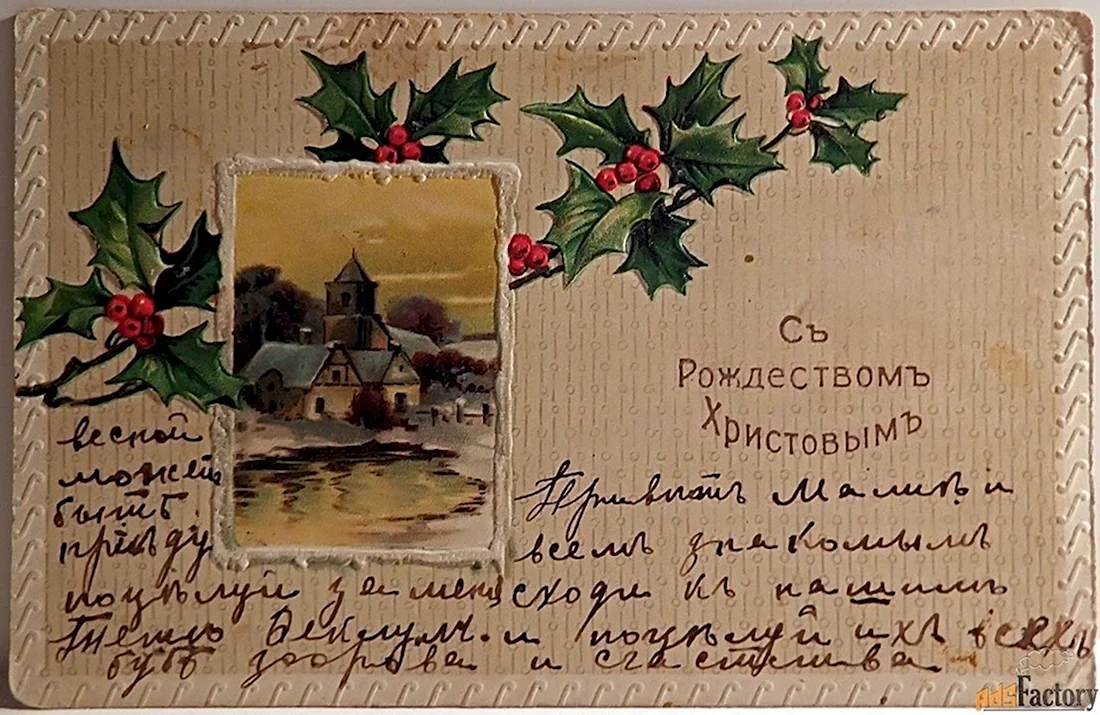 Съ
Рождествомъ
Христовымъ
весной
можетъ
быть
приѣду
Привѣтъ и
всемъ знакомымъ
поцѣлуй за меня сходи къ нашимъ
и поцѣлуй ихъ всехъ
будь здорова и счастлива
AdsFactory